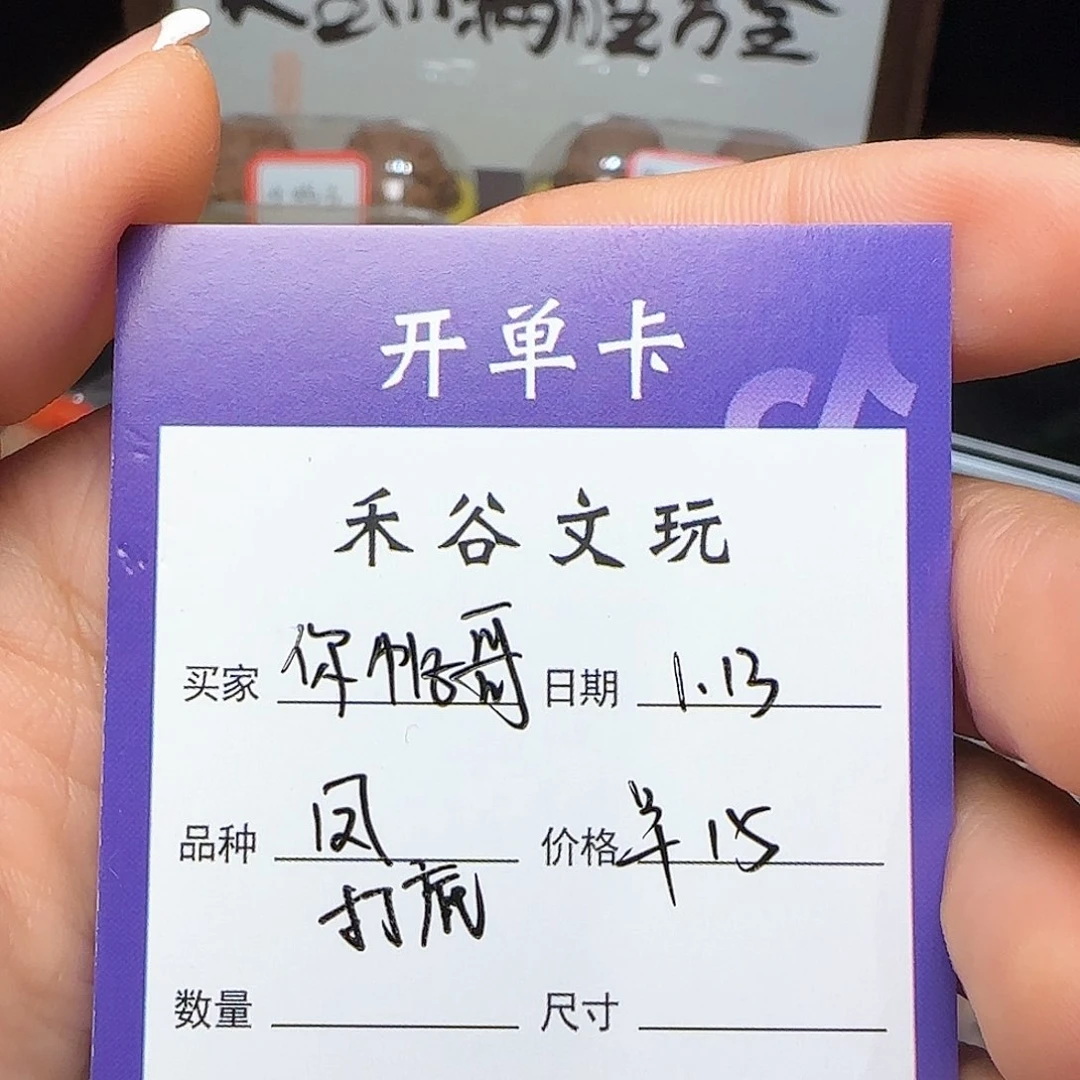 开单卡
禾谷文玩
买家 你帅哥 日期 1.13
品种 凤 价格 单 15
打底
数量 尺寸